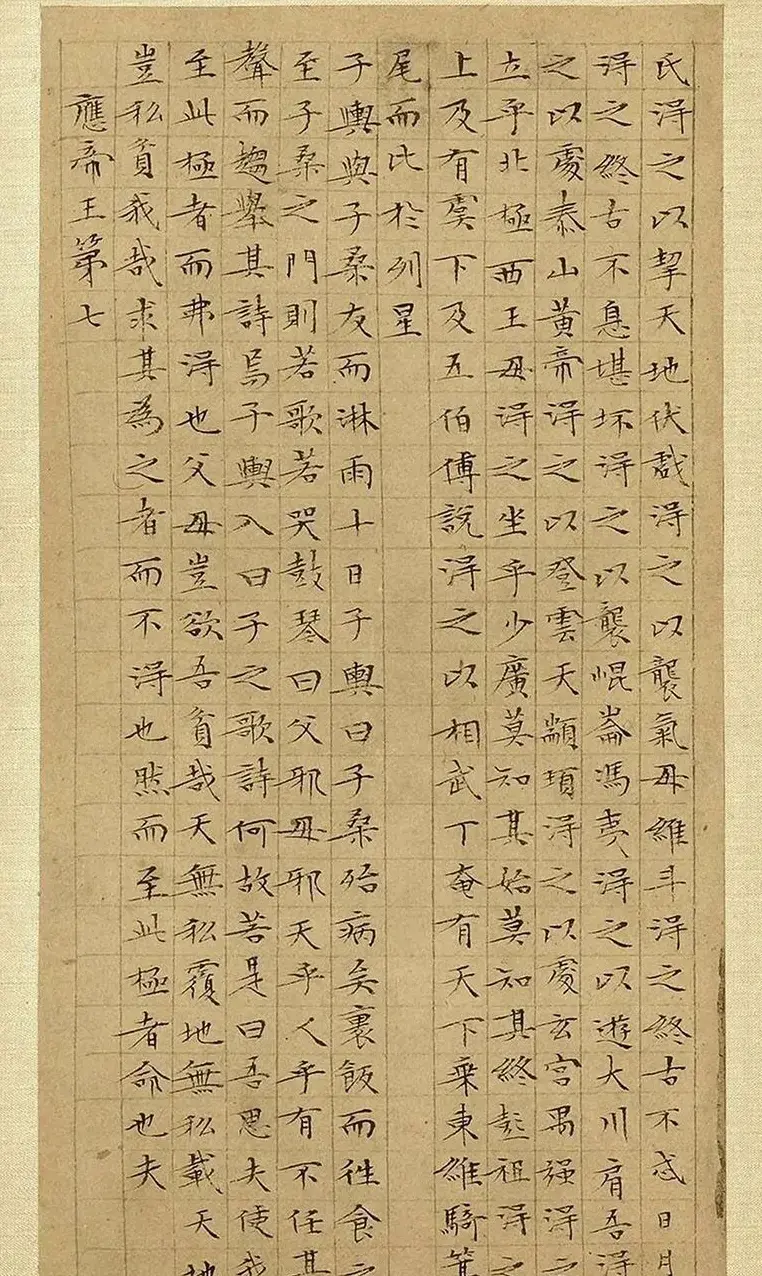 氏淂之以挈天地伏戱淂之以襲氣母維斗淂之終古不忒日月
淂之終古不息堪坏淂之以襲崐崙馮夷淂之以遊大川肩吾淂
之以處泰山黃帝淂之以登雲天顓頊淂之以處玄宮禺强淂之
立乎北極西王母淂之坐乎少廣莫知其始莫知其終彭祖淂之
上及有虞下及五伯傅說淂之以相武丁奄有天下乘東維騎箕
尾而比於列星
子輿與子桑友而淋雨十日子輿曰子桑殆病矣裹飯而往食之
至子桑之門則若歌若哭鼓琴曰父邪母邪天乎人乎有不任其
聲而趨舉其詩焉子輿入曰子之歌詩何故若是曰吾思夫使我
至此極者而弗淂也父母豈欲吾貧哉天無私覆地無私載天地
豈私貧我哉求其為之者而不淂也然而至此極者命也夫
應帝王第七